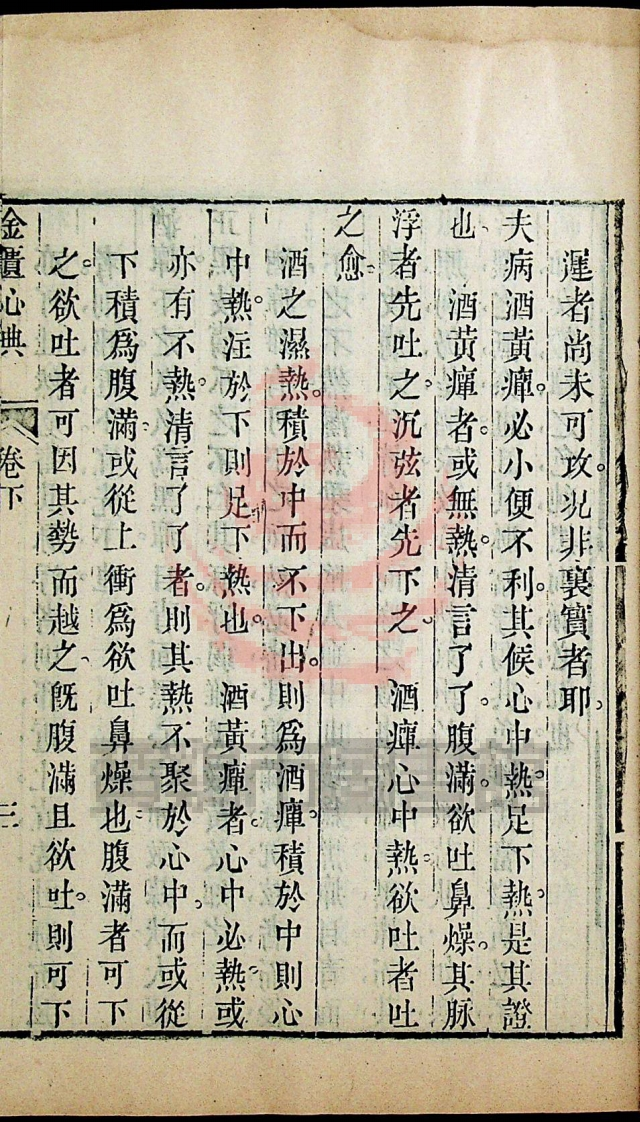 遲者尚未可攻。况非裏實者耶。
夫病酒黃癉。必小便不利。其候心中熱。足下熱。是其證
也。　酒黃癉者。或無熱。清言了了。腹滿。欲吐。鼻燥。其脉
浮者先吐之。沉弦者先下之。　酒癉心中熱。欲吐者。吐
之愈。
酒之濕熱。積於中而不下出。則爲酒癉。積於中則心
中熱。注於下則足下熱也。　酒黃癉者。心中必熱。或
亦有不熱。清言了了者。則其熱不聚於心中。而或從
下積爲腹滿。或從上衝爲欲吐鼻燥也。腹滿者可下
之。欲吐者可因其勢而越之、旣腹滿且欲吐。則可下
金匱心典　卷下　三